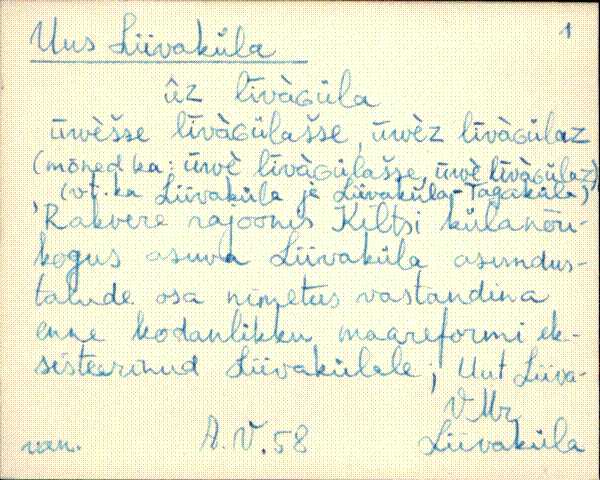 1
Uus Liivaküla
ûz līvàɢüla
ūwèšse līvàɢülašse, ūwèz līvàɢülaz
(mõned ka: ūwè līvàɢülašse, ūwè līvàɢülaz)
(vt. ka Liivaküla ja Liivaküla-Tagaküla)
Rakvere rajoonis Kiltsi külanõu-
kogus asuva Liivaküla asundus-
talude osa nimetus vastandina
enne kodanlikku maareformi ek-
sisteerinud Liivakülale; Uut Liiva-
V.Mr,
van. A.V.58 Liivaküla